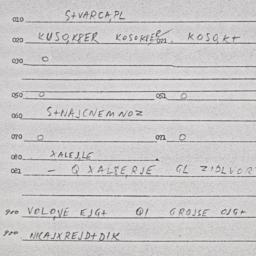 010 S+VARCA,PL
020 KUSQKPER KOSOKPER 021 KOSQK+
030 O
050 O 051 O
060 S+NAJCNEMNOZ
070 O 071 O
080 XALEJLE
081 - Q XALPERJE GL ZIDLVOR
900 VOLOVE EJG+ QI GROJSE OJG+
990 NICAJXREJD+DIK